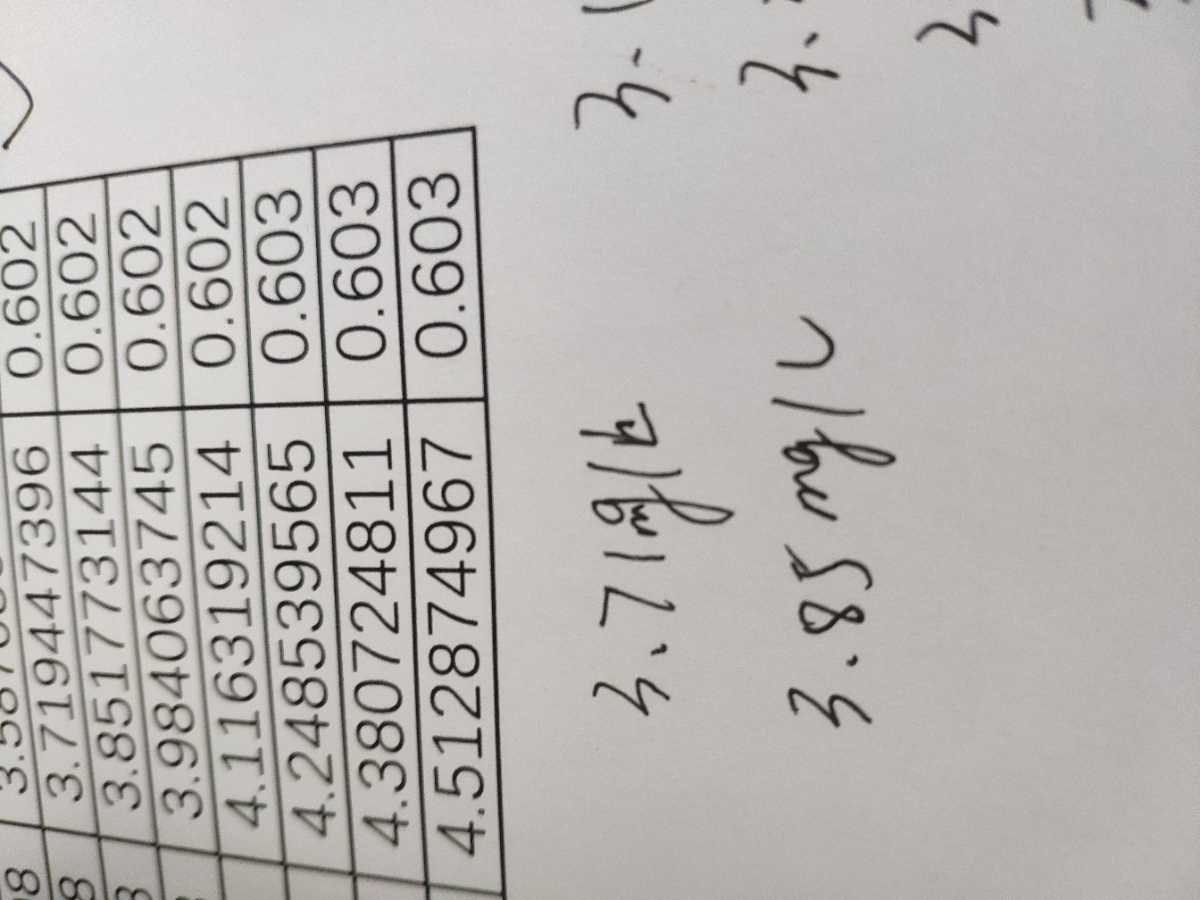 3.719447396 0.602
3.851773144 0.602
3.984063745 0.602
4.116319214 0.602
4.248539565 0.603
4.380724811 0.603
4.512874967 0.603
3.71mg/L 3.
3.85mg/L 3.
3